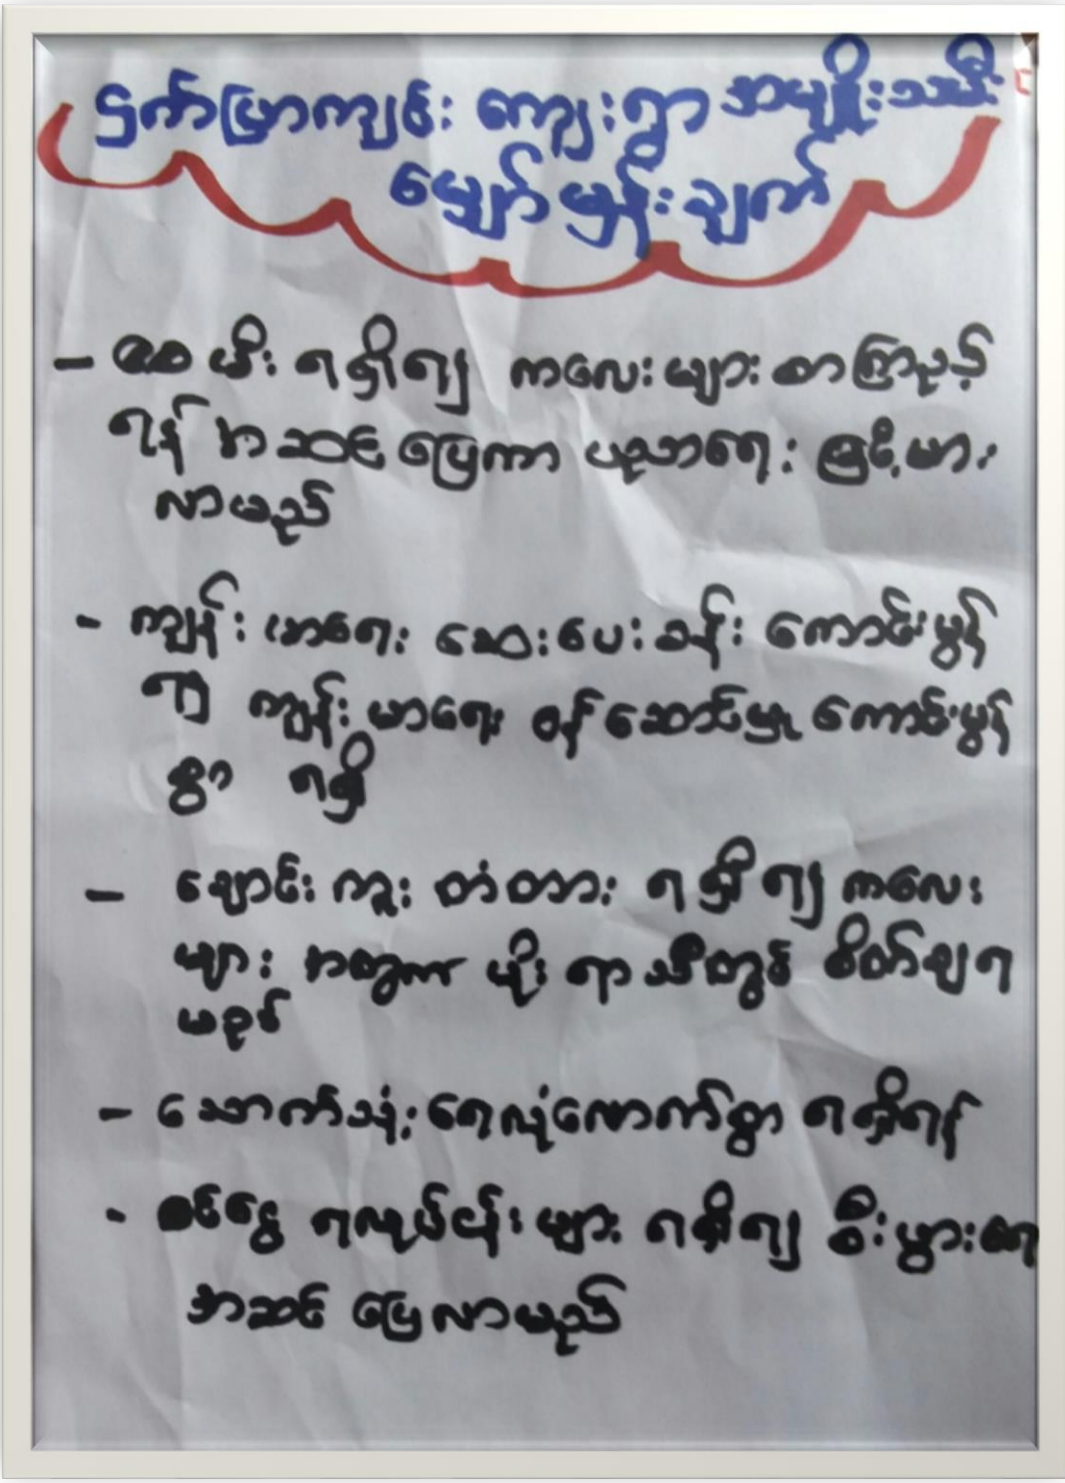 ငှက်ပြာကျင်း ကျေးရွာ အမျိုးသမီး
မျှော်မှန်းချက်
- မီး ရရှိ၍ ကလေးများ စာကြည့်
ရန် အဆင်ပြေကာ ပညာရေး မြင့်မား
လာမည်
- ကျန်းမာရေး ဆေးပေးခန်း ကောင်းမွန်
၍ ကျန်းမာရေး ဝန်ဆောင်မှု ကောင်းမွန်
စွာ ရရှိ
- ချောင်းကူး တံတား ရရှိ၍ ကလေး
များ အတွက် မိုးရာသီတွင် စိတ်ချရ
မည်
- သောက်သုံးရေလုံလောက်စွာ ရရှိရန်
- ဝင်ငွေ ရလုပ်ငန်းများ ရရှိ၍ စီးပွားရေ
အဆင်ပြေလာမည်